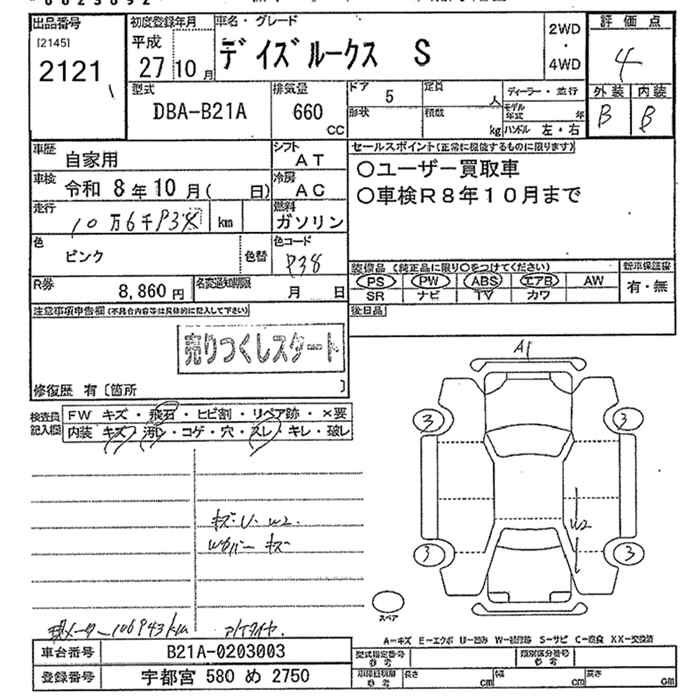 出品番号 初度登録年月 車名・グレード 2WD・4WD 評価点
[2145] 平成 デイズルークス S 4
2121 27 10月 外装 内装
型式 排気量 ドア 定員 ディーラー・並行 B B
DBA-B21A 660 CC 5 人 モデル年式 年
形状 積数 kg ハンドル 左・右
車歴 自家用 シフト AT セールスポイント(正常に機能するものに限ります)
車検 令和 8年10月( 日) 冷房 AC ○ユーザー買取車
走行 10万6千 km 燃料 ガソリン ○車検R8年10月まで
色 ピンク 色替 色コード P38
装備品(純正品に限り○をつけてください) 新車保証書
R券 8,860円 名変通知期限 月 日 PS PW ABS エアB AW 有・無
SR ナビ TV カワ
注意事項申告欄(不具合内容等は具体的に記入して下さい) 後日品
売りつくしスタート
修復歴 有 [箇所 ]
A1
検査員記入欄 FW キズ・飛石・ヒビ割・リペア跡・×要
内装 キズ・汚レ・コゲ・穴・スレ・キレ・破レ
3 3
キズ・U・W2
キズ
W2
3 3
スペア
メーター106943km
A-キズ E-エクボ U-凹み W-補修跡 S-サビ C-腐食 XX-交換済
車台番号 B21A-0203003 型式指定番号 参考 類別区分番号 参考
登録番号 宇都宮 580 め 2750 参考 長さ cm 幅 cm 高さ cm